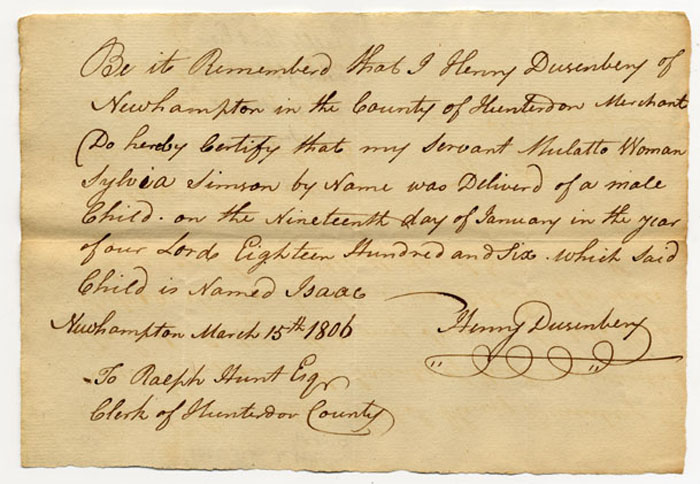 Be it Rememberd that I Henry Dusenbery of
Newhampton in the County of Hunterdon Merchant
Do hereby Certify that my Servant Mulatto Woman
Sylvia Simson by Name was Deliverd of a male
Child. on the Nineteenth day of January in the year
of our Lord Eighteen Hundred and Six. which said
Child is Named Isaac
Newhampton March 15th 1806
Henry Dusenbery
To Ralph Hunt Esqr
Clerk of Hunterdon County